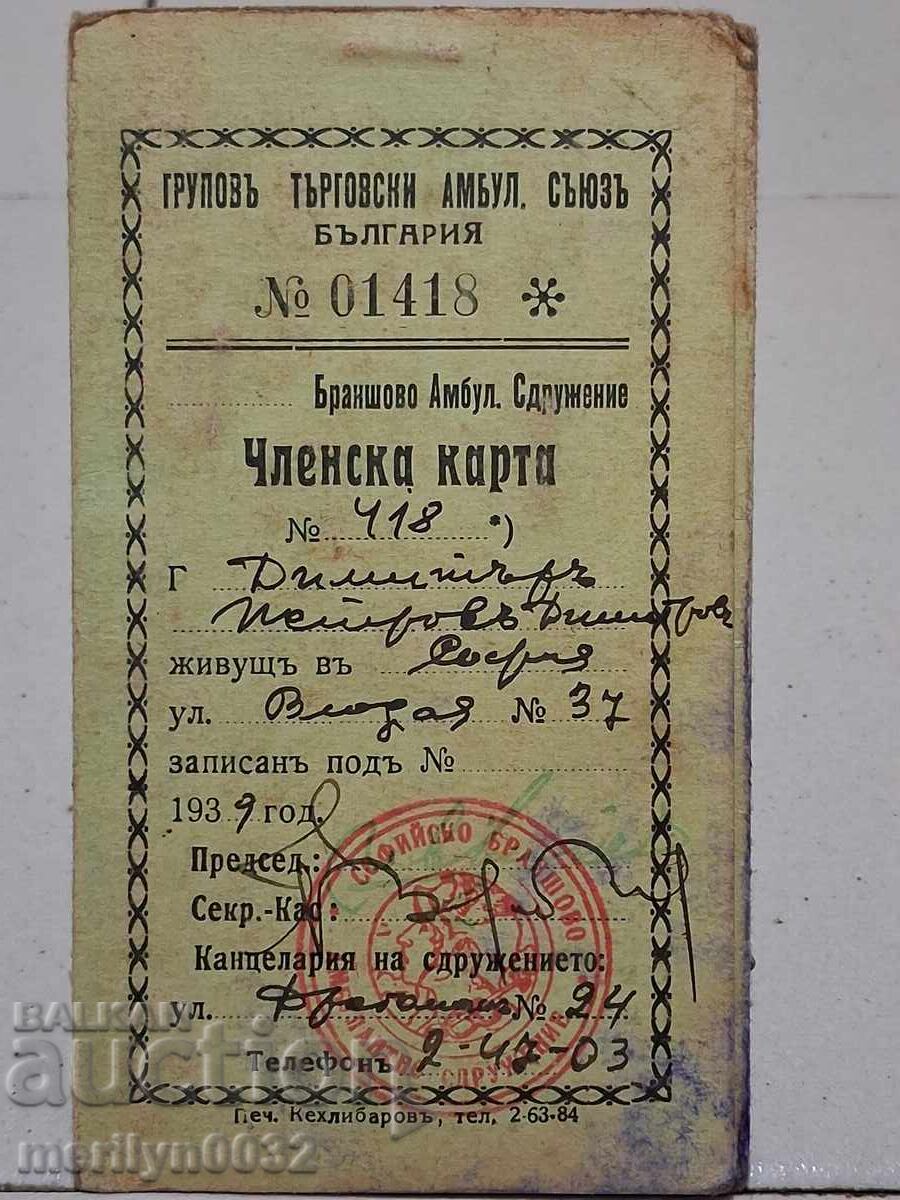 ГРУПОВЪ ТЪРГОВСКИ АМБУЛ. СЪЮЗЪ
БЪЛГАРИЯ
№ 01418 *
Браншово Амбул. Сдружение
Членска карта
№ 418 *)
Г Димитъръ
Петровъ Димитровъ
живущъ въ София
ул. № 37
записанъ подъ №
1939 год.
Председ.:
Секр.-Кас.:
Канцелария на сдружението:
ул. № 24
Телефонъ 2-47-03
Печ. Кехлибаровъ, тел. 2-63-84
СОФИЙСКО БРАНШОВО СДРУЖЕНИЕ
BALKAN
auction
merilyn0032